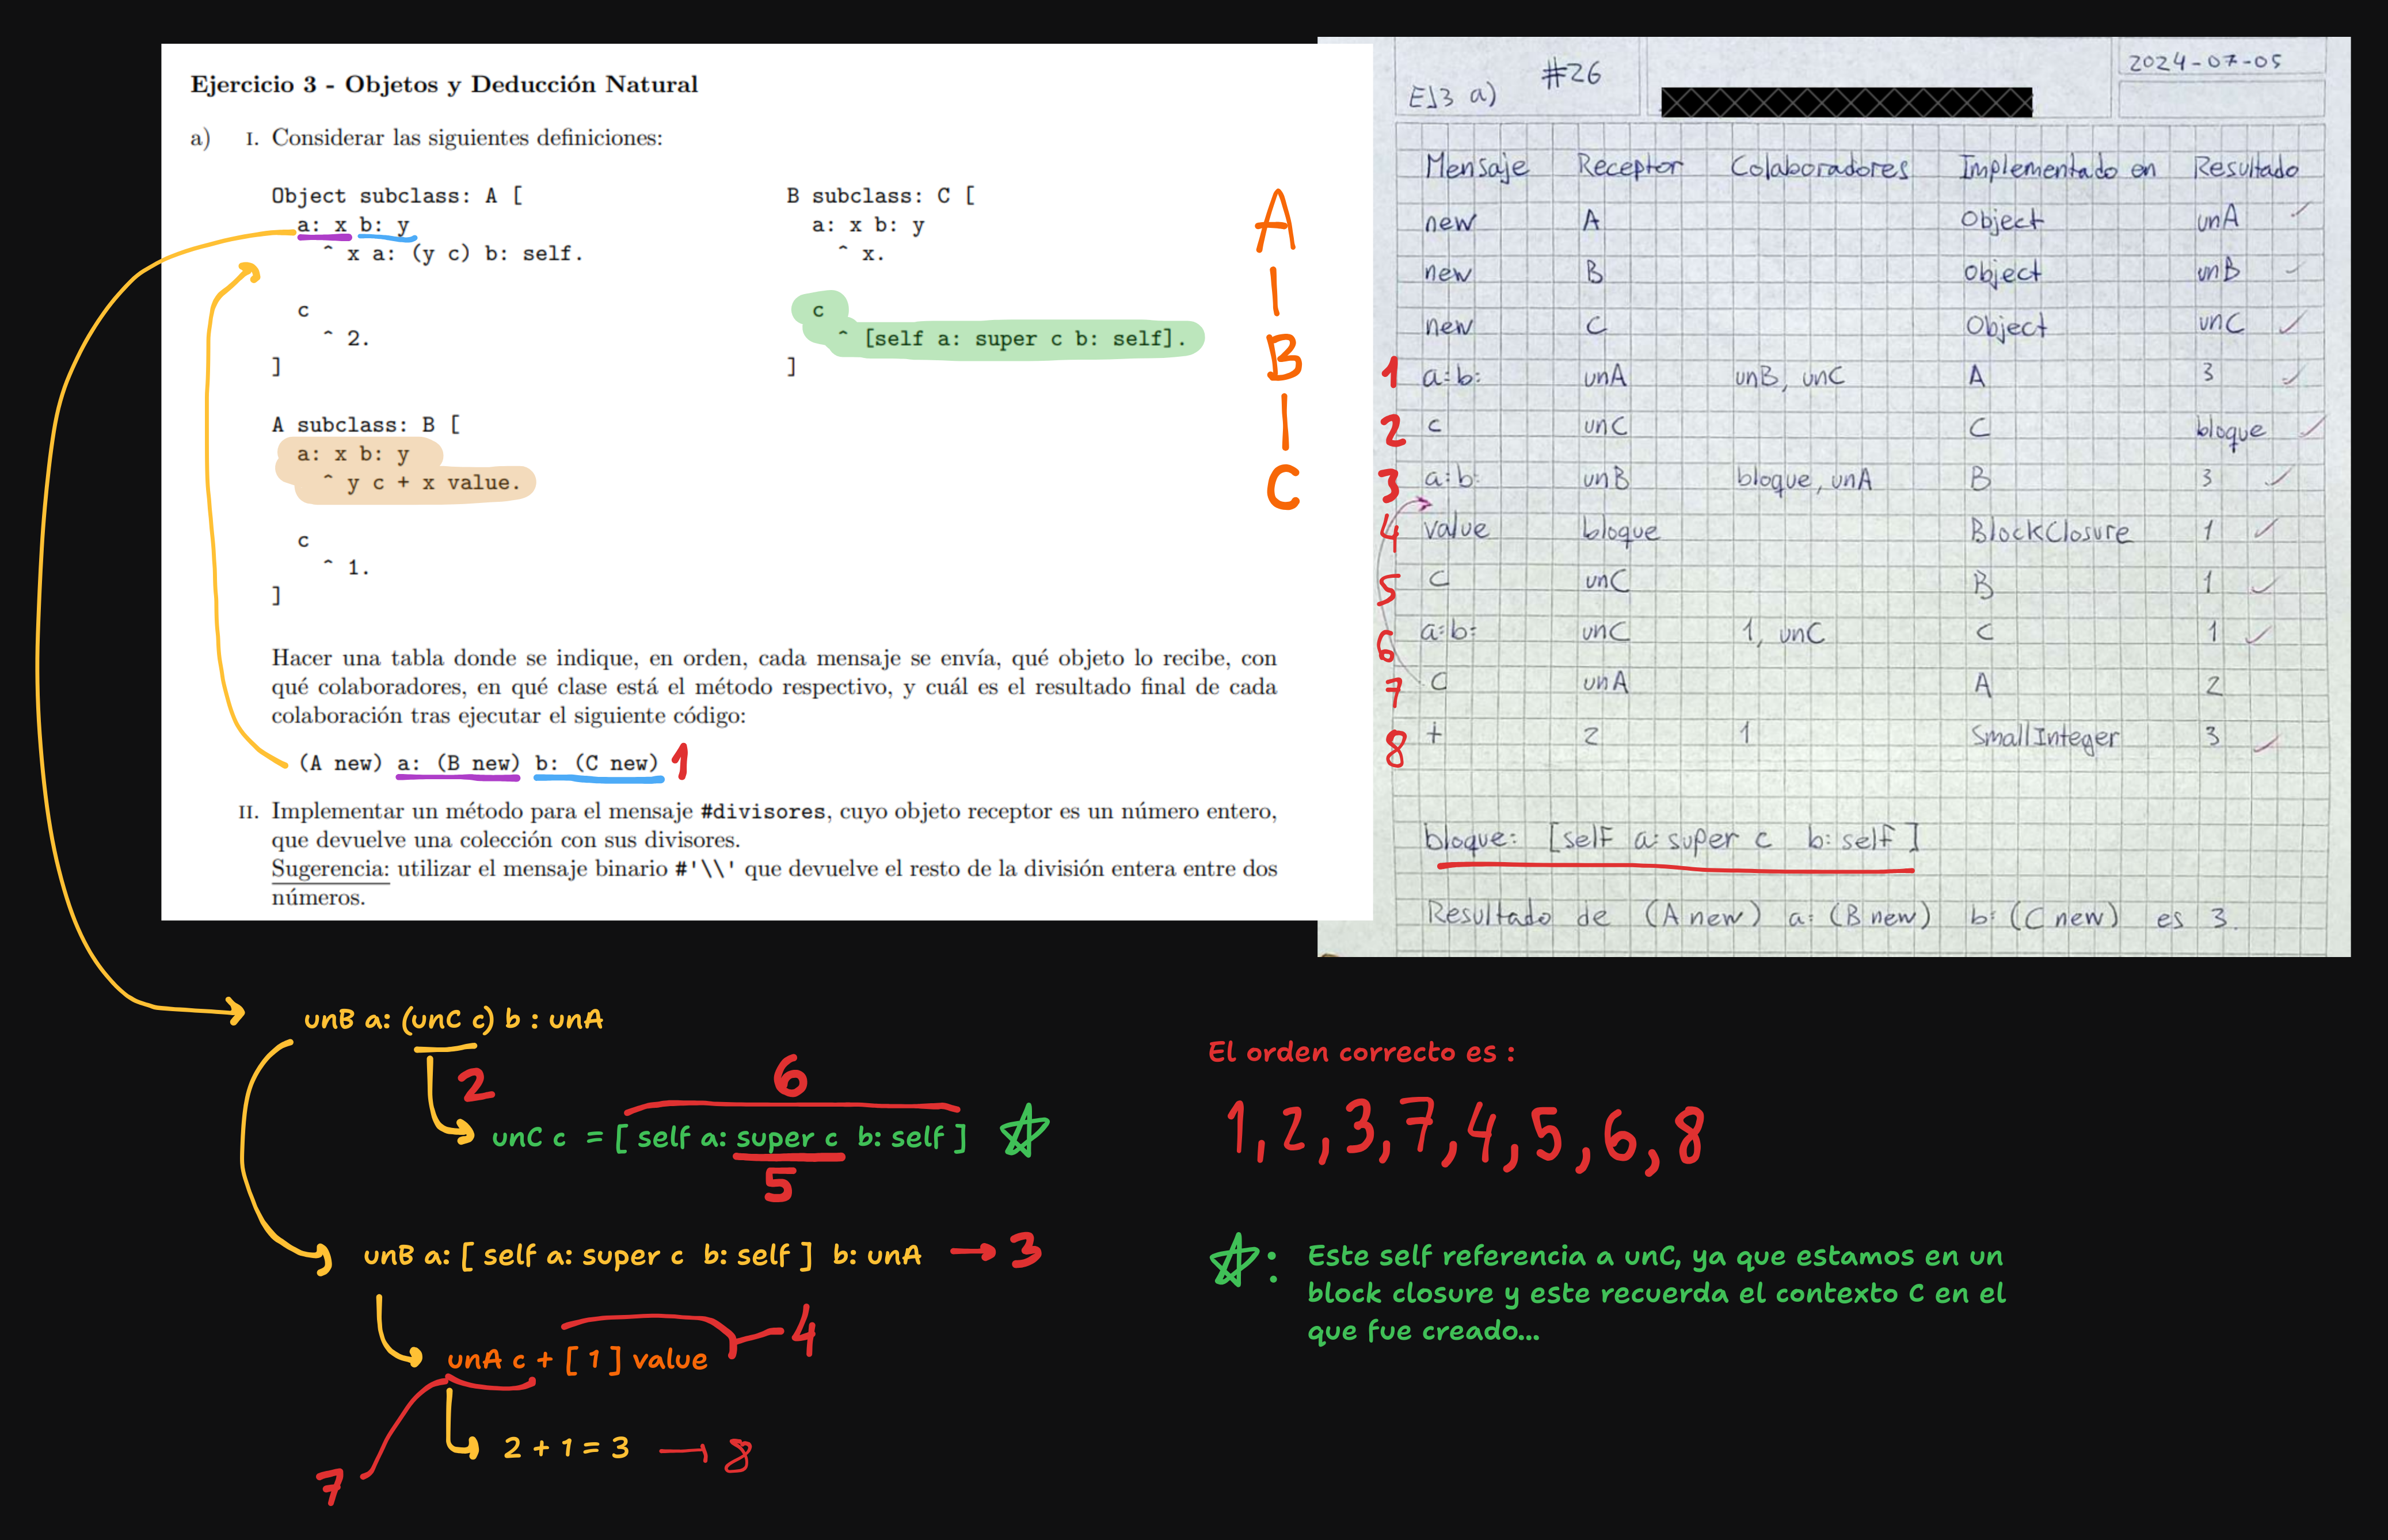 Ejercicio 3 - Objetos y Deducción Natural
a) I. Considerar las siguientes definiciones:
Object subclass: A [
a: x b: y
^ x a: (y c) b: self.
c
^ 2.
]
A subclass: B [
a: x b: y
^ y c + x value.
c
^ 1.
]
B subclass: C [
a: x b: y
^ x.
c
^ [self a: super c b: self].
]
A
B
C
Hacer una tabla donde se indique, en orden, cada mensaje se envía, qué objeto lo recibe, con
qué colaboradores, en qué clase está el método respectivo, y cuál es el resultado final de cada
colaboración tras ejecutar el siguiente código:
(A new) a: (B new) b: (C new) 1
II. Implementar un método para el mensaje #divisores, cuyo objeto receptor es un número entero,
que devuelve una colección con sus divisores.
Sugerencia: utilizar el mensaje binario #'\\' que devuelve el resto de la división entera entre dos
números.
EJ3 a) #26 2024-07-05
Mensaje Receptor Colaboradores Implementado en Resultado
new A Object unA
new B Object unB
new C Object unC
1 a:b: unA unB, unC A 3
2 c unC C bloque
3 a:b: unB bloque, unA B 3
4 value bloque BlockClosure 1
5 c unC B 1
6 a:b: unC 1, unC C 1
7 c unA A 2
8 + 2 1 SmallInteger 3
bloque: [self a: super c b: self]
Resultado de (A new) a: (B new) b: (C new) es 3.
unB a: (unC c) b : unA
2
6
unC c = [ self a: super c b: self ]
5
unB a: [ self a: super c b: self ] b: unA 3
4
unA c + [ 1 ] value
7
2 + 1 = 3 8
El orden correcto es :
1, 2, 3, 7, 4, 5, 6, 8
: Este self referencia a unC, ya que estamos en un
block closure y este recuerda el contexto C en el
que fue creado...